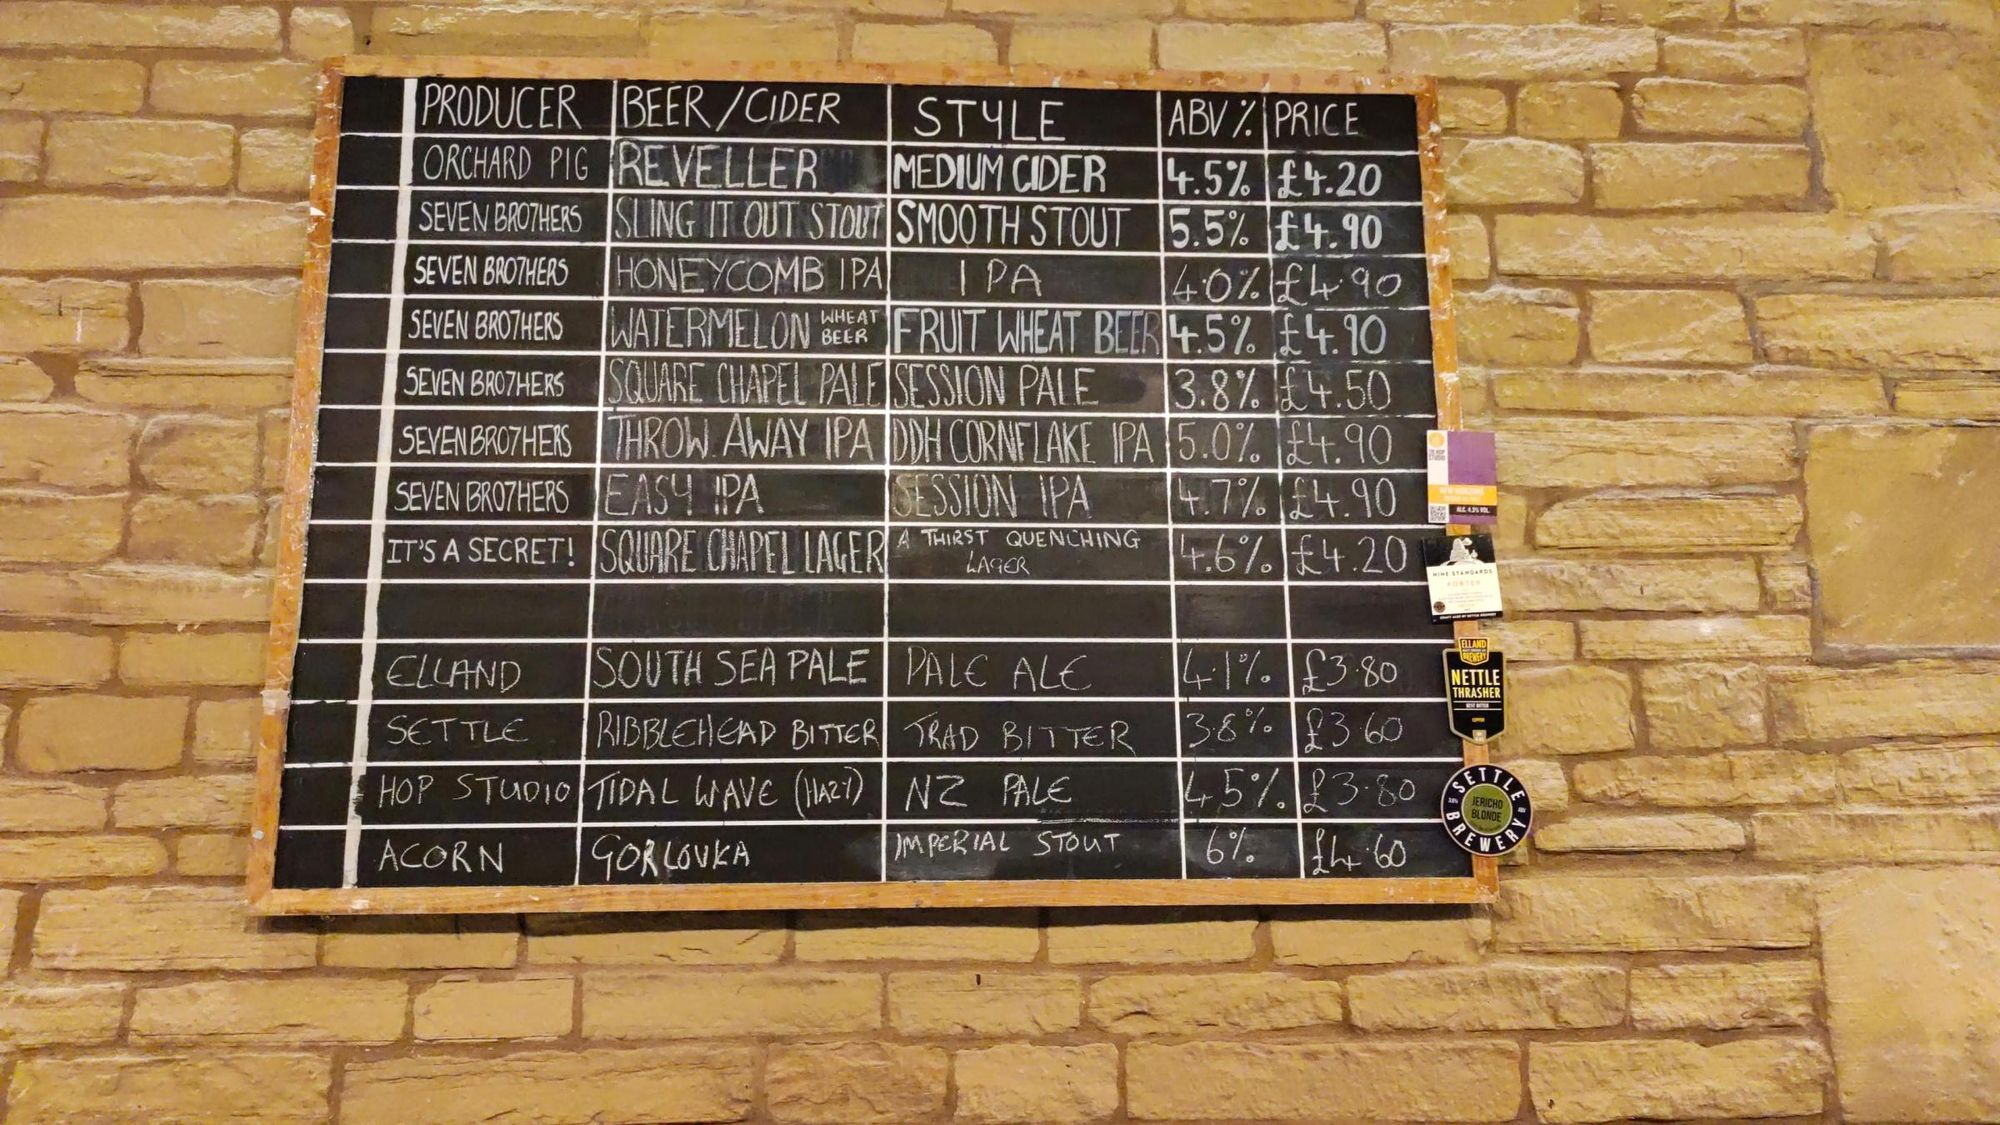 PRODUCER BEER/CIDER STYLE ABV % PRICE
ORCHARD PIG REVELLER MEDIUM CIDER 4.5% £4.20
SEVEN BRO7HERS SLING IT OUT STOUT SMOOTH STOUT 5.5% £4.90
SEVEN BRO7HERS HONEYCOMB IPA IPA 4.0% £4.90
SEVEN BRO7HERS WATERMELON WHEAT BEER FRUIT WHEAT BEER 4.5% £4.90
SEVEN BRO7HERS SQUARE CHAPEL PALE SESSION PALE 3.8% £4.50
SEVEN BRO7HERS THROW AWAY IPA DDH CORNFLAKE IPA 5.0% £4.90
SEVEN BRO7HERS EASY IPA SESSION IPA 4.7% £4.90
IT'S A SECRET! SQUARE CHAPEL LAGER A THIRST QUENCHING LAGER 4.6% £4.20
ELLAND SOUTH SEA PALE PALE ALE 4.1% £3.80
SETTLE RIBBLEHEAD BITTER TRAD BITTER 3.8% £3.60
HOP STUDIO TIDAL WAVE (HAZY) NZ PALE 4.5% £3.80
ACORN GORLOVKA IMPERIAL STOUT 6% £4.60
ALC 4.5% VOL
NINE STANDARDS
PORTER
ELLAND
BREWERY
NETTLE
THRASHER
BEST BITTER
SETTLE
JERICHO
BLONDE
BREWERY